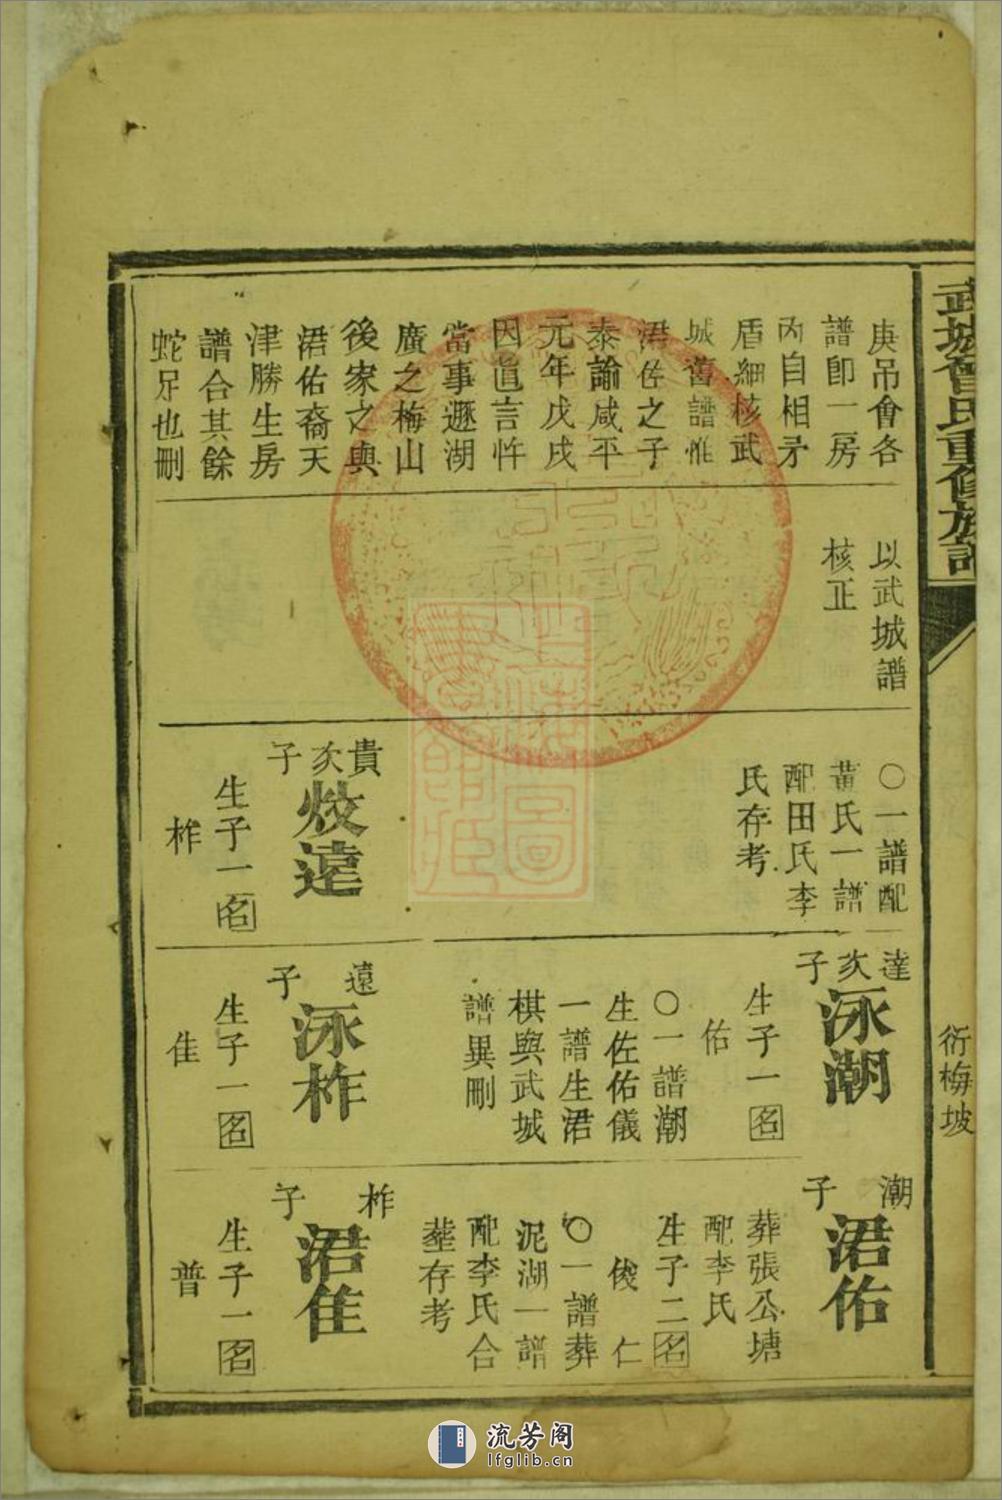 武城曾氏重修族譜
衍梅坡
庚吊會各
譜即一房
內自相矛
盾細核武
城舊譜惟
涒佐之子
泰諭咸平
元年戊戌
因直言忤
當事遯湖
廣之梅山
後家之與
涒佑裔天
津勝生房
譜合其餘
蛇足也刪
以武城譜
核正
○一譜配
黃氏一譜
配田氏李
氏存考
貴次子
炆遠
生子一名
柞
達次子
泳潮
生子一名
佑
○一譜潮
生佐佑儀
一譜生涒
棋與武城
譜異刪
遠子
泳柞
生子一名
隹
潮子
涒佑
葬張公塘
配李氏
生子二名
俊 仁
○一譜葬
泥湖一譜
配李氏合
塟存考
柞子
涒隹
生子一名
普
流芳阁
lfglib.cn